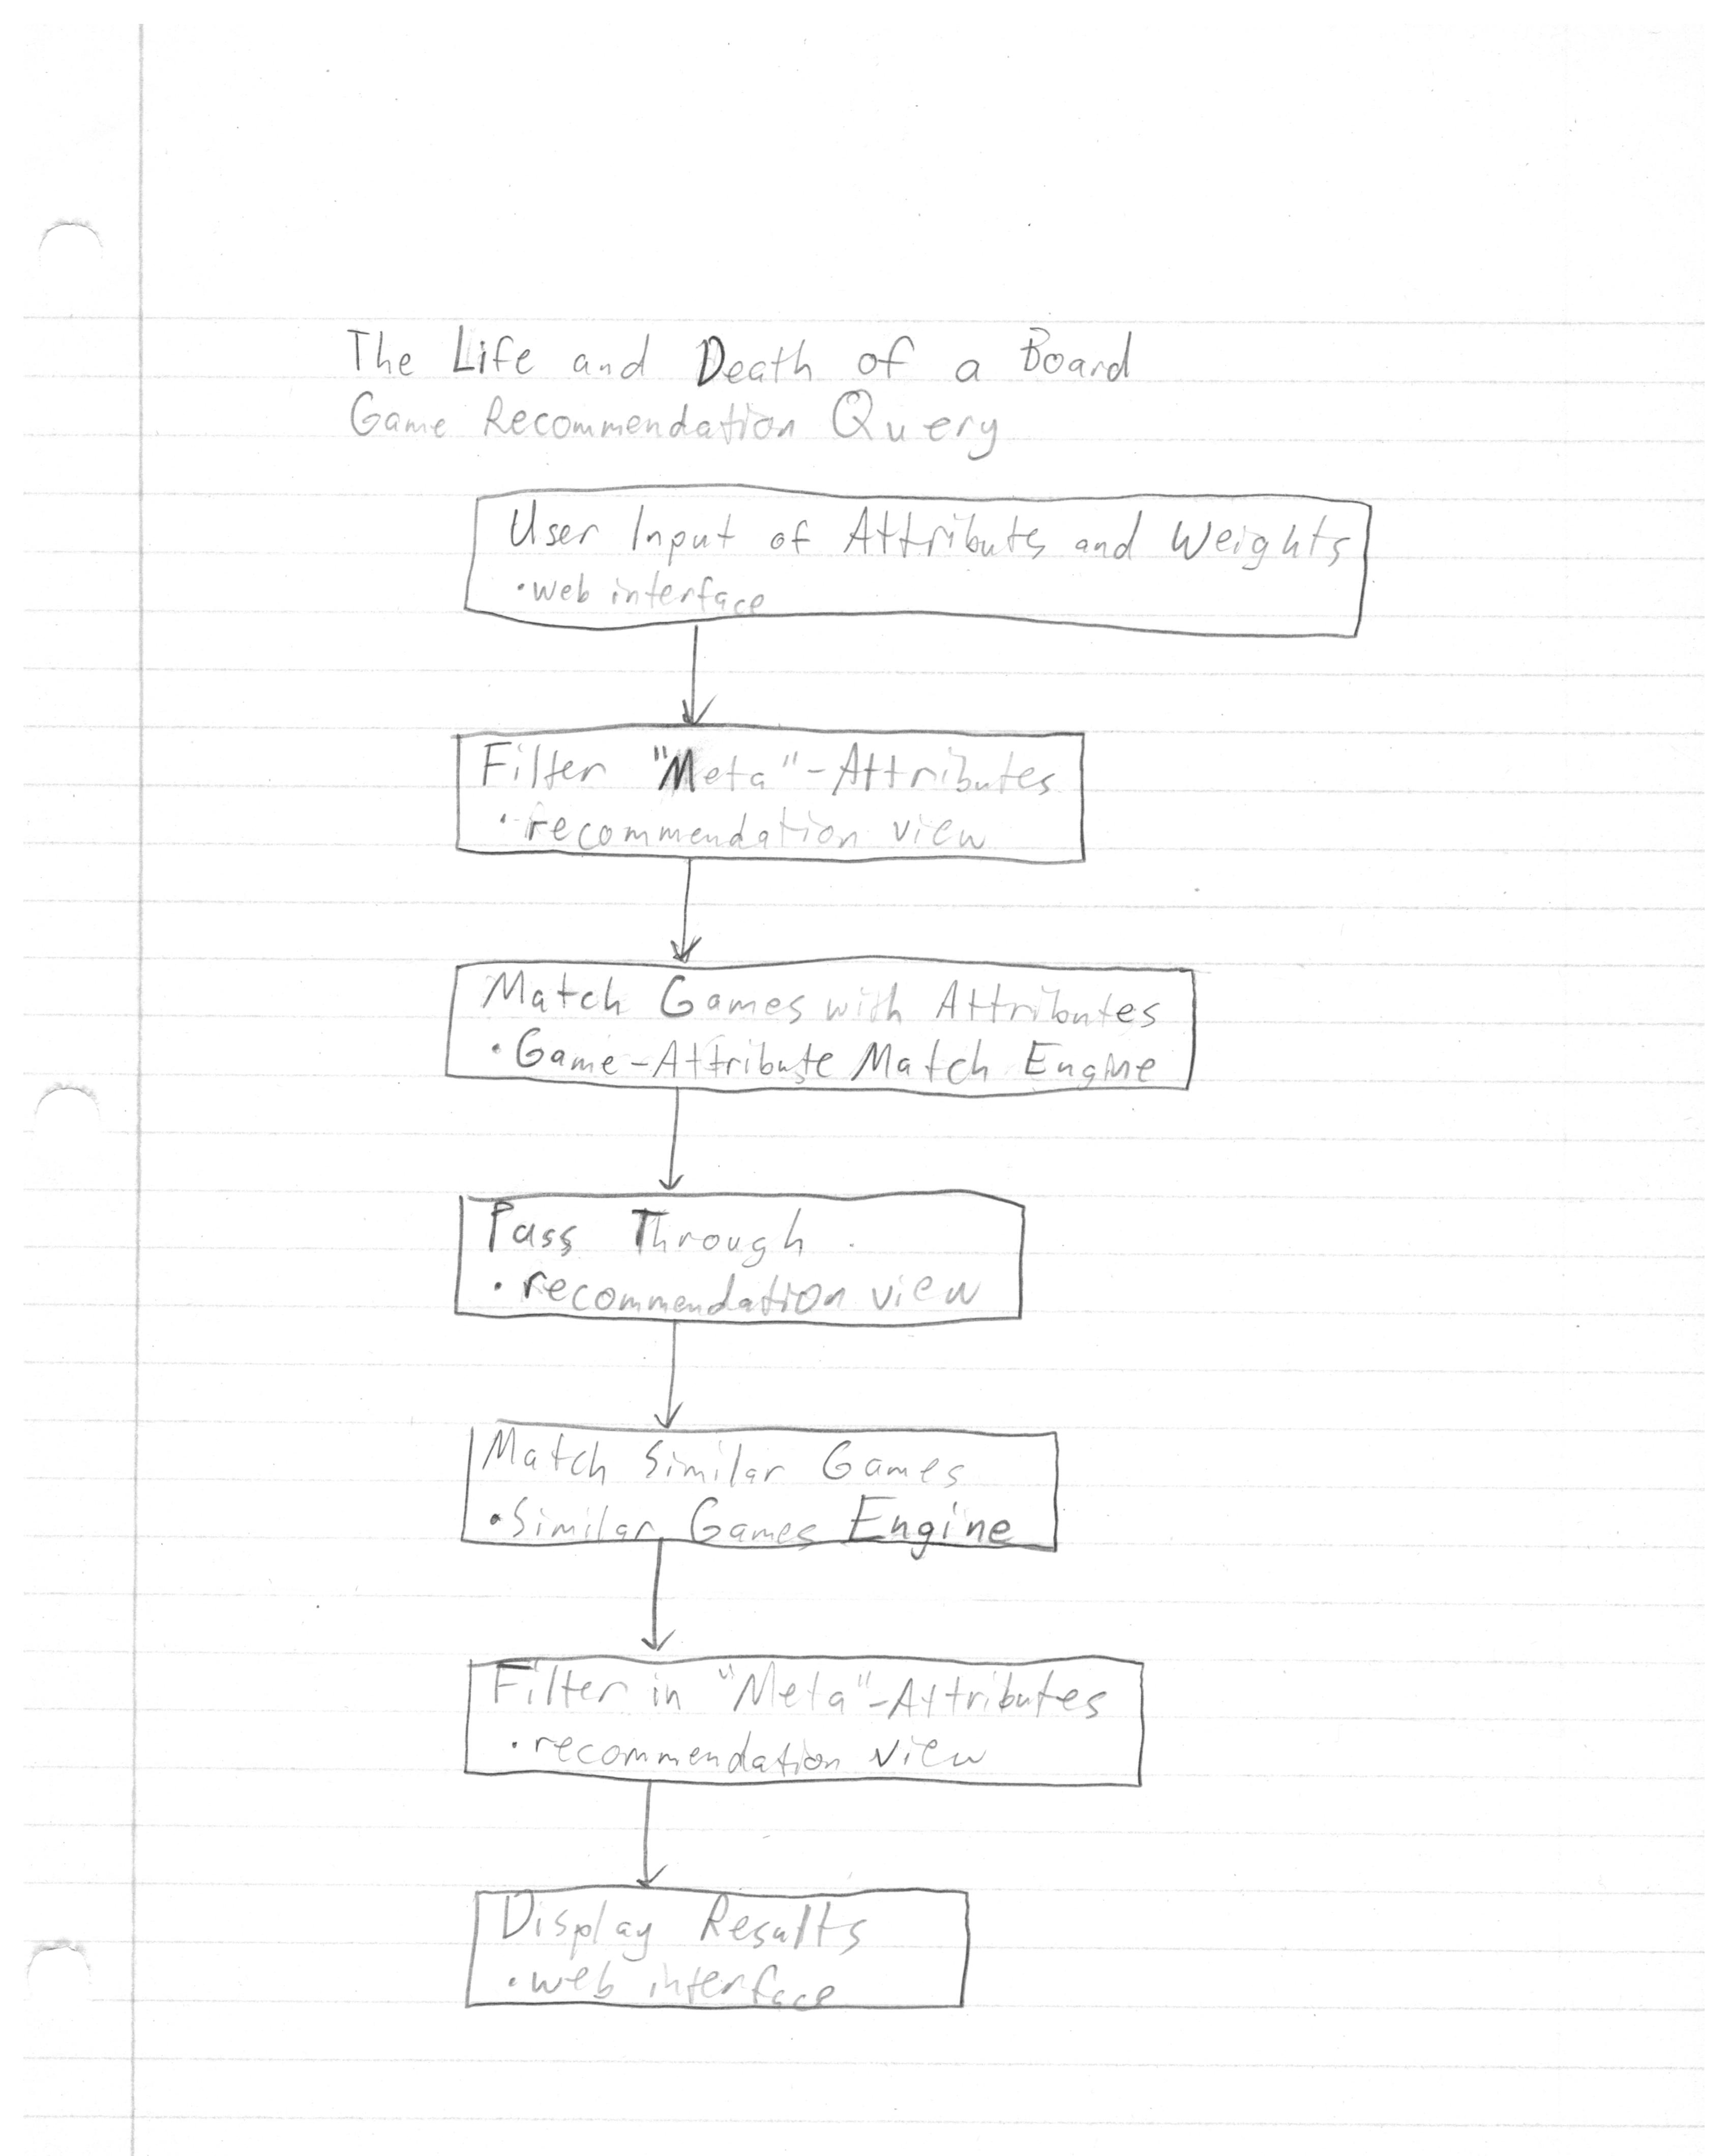 The Life and Death of a Board
Game Recommendation Query
User Input of Attributes and Weights
•web interface
Filter "Meta"-Attributes
•recommendation view
Match Games with Attributes
•Game-Attribute Match Engine
Pass Through
•recommendation view
Match Similar Games
•Similar Games Engine
Filter in "Meta"-Attributes
•recommendation view
Display Results
•web interface